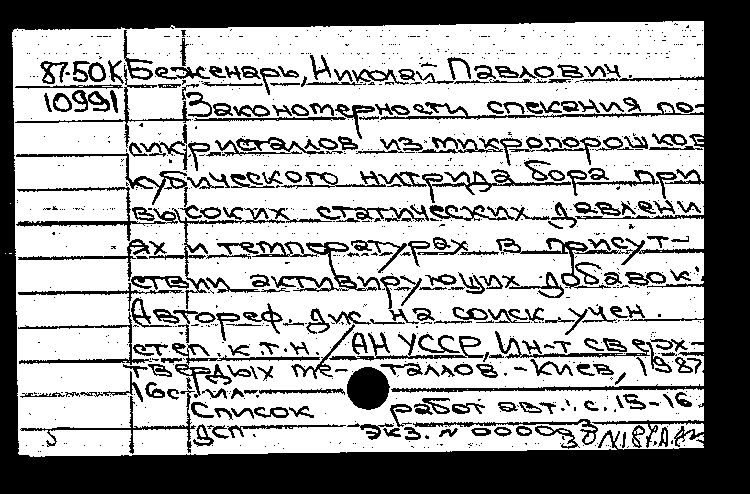 87-50К Беженарь, Николай Павлович.
10991 Закономерности спекания по-
ликристаллов из микропорошков
кубического нитрида бора при
высоких статических давлени-
ях и температурах в присут-
ствии активирующих добавок:
Автореф. дис. на соиск. учен.
степ. к.т.н. АН УССР, Ин-т сверх-
твердых ме- таллов. - Киев, 1987.
16с. ил.
Список работ авт.: с. 15-16.
ДСП. экз. № 000093